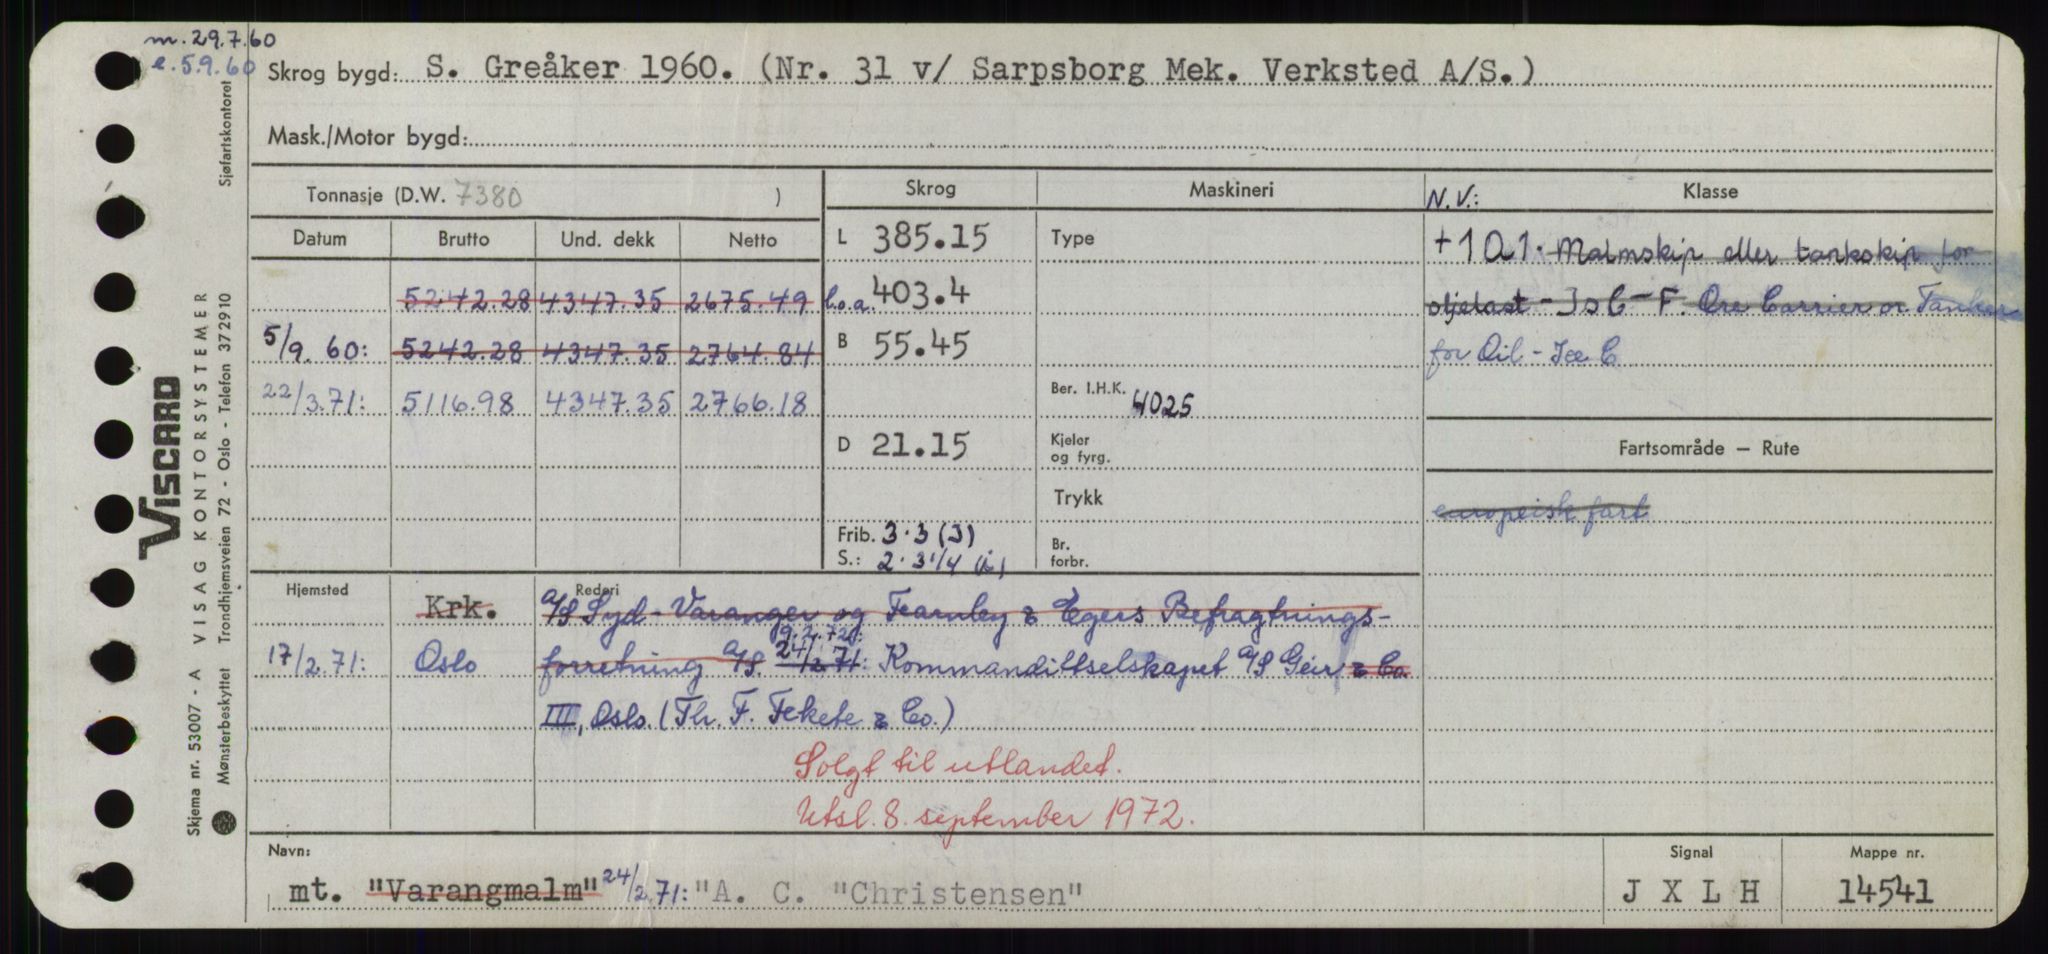 m. 29.7.60
e. 5.9.60
Skrog bygd: S. Greåker 1960. (Nr. 31 v/ Sarpsborg Mek. Verksted A/S.)
Mask./Motor bygd:
Tonnasje (D.W. 7380 )
Skrog
Maskineri
N.V.: Klasse
Datum Brutto Und. dekk Netto
L 385.15
Type
+1A1. Malmskip eller tankskip for
5242.28 4347.35 2675.49
l.o.a. 403.4
oljelast - Is C - F. Ore Carrier or Tanker
5/9.60: 5242.28 4347.35 2764.84
B 55.45
for Oil - Ice C
22/3.71: 5116.98 4347.35 2766.18
Ber. I.H.K. 4025
D 21.15
Kjeler
og fyrg.
Fartsområde – Rute
Trykk
europeisk fart
Frib. 3.3 (J)
S.: 2.3 1/4
Br.
forbr.
Hjemsted
Rederi
Krk.
A/S Syd-Varanger og Fearnley & Egers Befragtnings-
9.2.72:
17/2.71: Oslo forretning A/S. 24/2.71: Kommandittselskapet A/S Geir & Co.
III, Oslo. (Th. F. Fekete & Co.)
Solgt til utlandet.
Utsl. 8. september 1972.
Navn:
Signal
Mappe nr.
mt. "Varangmalm" 24/2.71: "A. C. "Christensen"
J X L H
14541
Sjøfartskontoret
VISCARD
Skjema nr. 53007 - A VISAG KONTORSYSTEMER
Mønsterbeskyttet Trondhjemsveien 72 - Oslo - Telefon 372910